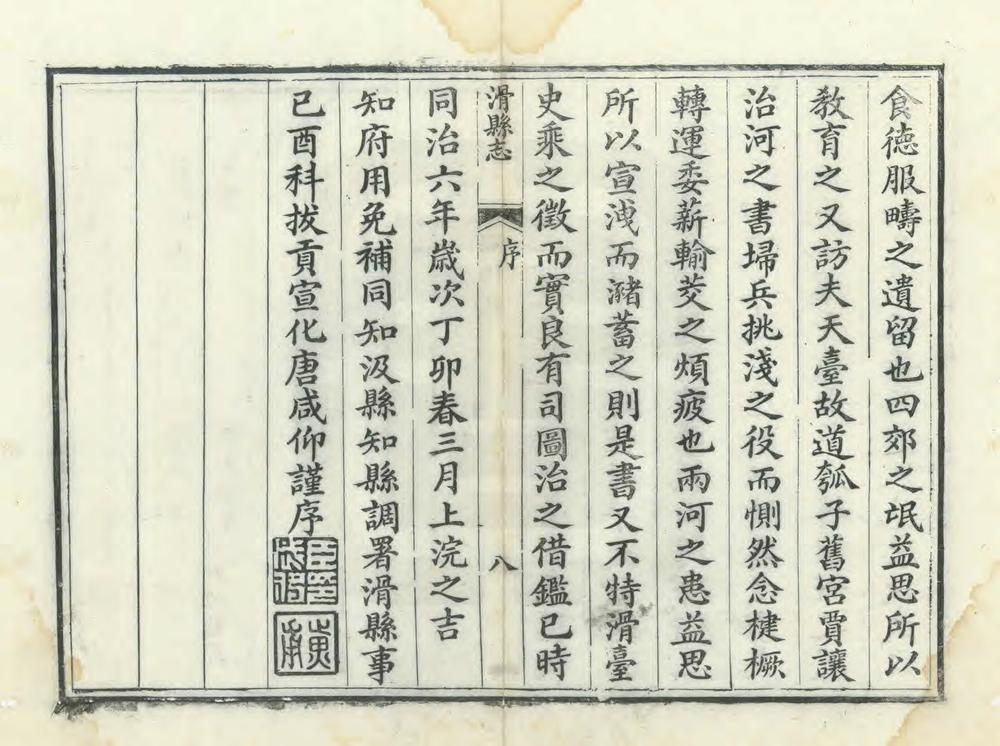 食德服疇之遺留也四郊之氓益思所以
教育之又訪夫天臺故道瓠子舊宮賈讓
治河之書埽兵挑淺之役而惻然念楗橛
轉運委薪輸茭之煩疲也兩河之患益思
所以宣洩而瀦蓄之則是書又不特滑臺
史乘之徵而實良有司圖治之借鑑已時
滑縣志 序 八
同治六年歲次丁卯春三月上浣之吉
知府用免補同知汲縣知縣調署滑縣事
己酉科拔貢宣化唐咸仰謹序